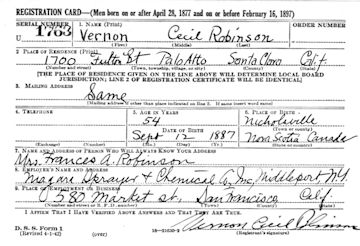 REGISTRATION CARD—(Men born on or after April 28, 1877 and on or before February 16, 1897)
SERIAL NUMBER 1. NAME (Print) ORDER NUMBER
U 1763 Vernon Cecil Robinson
(First) (Middle) (Last)
2. PLACE OF RESIDENCE (Print)
1700 Fulton St Palo Alto Santa Clara Calif.
(Number and street) (Town, township, village, or city) (County) (State)
[THE PLACE OF RESIDENCE GIVEN ON THE LINE ABOVE WILL DETERMINE LOCAL BOARD
JURISDICTION; LINE 2 OF REGISTRATION CERTIFICATE WILL BE IDENTICAL]
3. MAILING ADDRESS
Same
[Mailing address if other than place indicated on line 2. If same insert word same]
4. TELEPHONE 5. AGE IN YEARS 6. PLACE OF BIRTH
54 Nicholsville
DATE OF BIRTH (Town or county)
Sept 12 1887 Nova Scotia Canada
(Mo.) (Day) (Yr.) (State or country)
7. NAME AND ADDRESS OF PERSON WHO WILL ALWAYS KNOW YOUR ADDRESS
Mrs. Frances A. Robinson
8. EMPLOYER'S NAME AND ADDRESS
Niagara Sprayer & Chemical Co, Inc, Middleport N.Y.
9. PLACE OF EMPLOYMENT OR BUSINESS
Market St. San Francisco Calif.
(Number and street or R. F. D. number) (Town) (County) (State)
I AFFIRM THAT I HAVE VERIFIED ABOVE ANSWERS AND THAT THEY ARE TRUE.
D. S. S. Form 1
(Revised 4-1-42) (over) Vernon Cecil Robinson
(Registrant's signature)